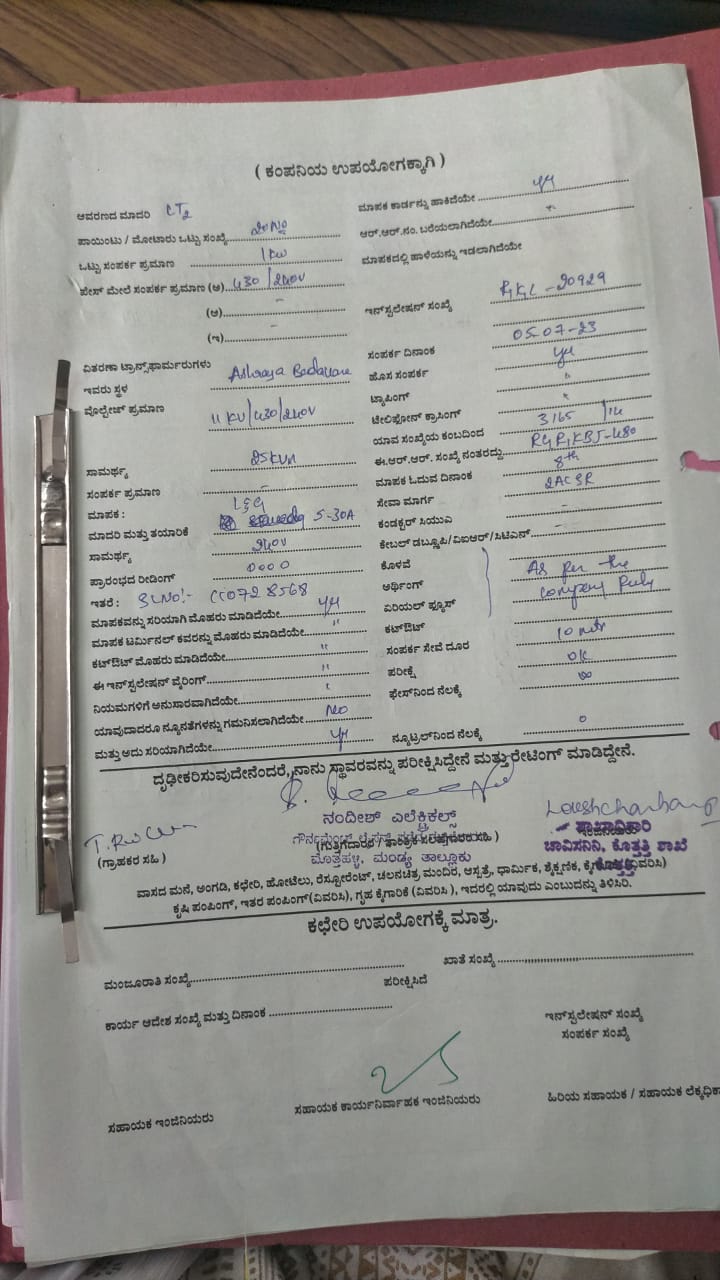 ( ಕಂಪನಿಯ ಉಪಯೋಗಕ್ಕಾಗಿ )
ಆವರಣದ ಮಾದರಿ CT2
ಪಾಯಿಂಟು / ಮೋಟಾರು ಒಟ್ಟು ಸಂಖ್ಯೆ
ಒಟ್ಟು ಸಂಪರ್ಕ ಪ್ರಮಾಣ 1 KW
ಫೇಸ್ ಮೇಲೆ ಸಂಪರ್ಕ ಪ್ರಮಾಣ (ಅ) 430/240V
(ಆ) -
(ಇ) -
ವಿತರಣಾ ಟ್ರಾನ್ಸ್‌ಫಾರ್ಮರುಗಳು
ಇವರು ಸ್ಥಳ
ವೊಲ್ಟೇಜ್ ಪ್ರಮಾಣ 11 KV/430/240V
ಸಾಮರ್ಥ್ಯ 25 KVA
ಸಂಪರ್ಕ ಪ್ರಮಾಣ -
ಮಾಪಕ : L&G
ಮಾದರಿ ಮತ್ತು ತಯಾರಿಕೆ 5-30A
ಸಾಮರ್ಥ್ಯ 240V
ಪ್ರಾರಂಭದ ರೀಡಿಂಗ್ 0000
ಇತರೆ : SL No:- CC0728568
ಮಾಪಕವನ್ನು ಸರಿಯಾಗಿ ಮೊಹರು ಮಾಡಿದೆಯೇ yes
ಮಾಪಕ ಟರ್ಮಿನಲ್ ಕವರನ್ನು ಮೊಹರು ಮಾಡಿದೆಯೇ "
ಕಟ್‌ಔಟ್ ಮೊಹರು ಮಾಡಿದೆಯೇ "
ಈ ಇನ್‌ಸ್ಟಲೇಷನ್ ವೈರಿಂಗ್ "
ನಿಯಮಗಳಿಗೆ ಅನುಸಾರವಾಗಿದೆಯೇ
ಯಾವುದಾದರೂ ನ್ಯೂನತೆಗಳನ್ನು ಗಮನಿಸಲಾಗಿದೆಯೇ No
ಮತ್ತು ಅದು ಸರಿಯಾಗಿದೆಯೇ yes
ಮಾಪಕ ಕಾರ್ಡನ್ನು ಹಾಕಿದೆಯೇ yes
ಆರ್.ಆರ್.ನಂ. ಬರೆಯಲಾಗಿದೆಯೇ
ಮಾಪಕದಲ್ಲಿ ಹಾಳೆಯನ್ನು ಇಡಲಾಗಿದೆಯೇ
ಇನ್‌ಸ್ಟಲೇಷನ್ ಸಂಖ್ಯೆ
ಸಂಪರ್ಕ ದಿನಾಂಕ 05-07-23
ಹೊಸ ಸಂಪರ್ಕ yes
ಟ್ಯಾಪಿಂಗ್
ಟೆಲಿಫೋನ್ ಕ್ರಾಸಿಂಗ್
ಯಾವ ಸಂಖ್ಯೆಯ ಕಂಬದಿಂದ
ಈ.ಆರ್.ಆರ್. ಸಂಖ್ಯೆ ನಂತರದ್ದು
ಮಾಪಕ ಓದುವ ದಿನಾಂಕ 8th
ಸೇವಾ ಮಾರ್ಗ 2ACSR
ಕಂಡಕ್ಟರ್ ಸಿಯುಎ -
ಕೇಬಲ್ ಡಬ್ಲ್ಯೂಪಿ/ವಿಐಆರ್/ಸಿಟಿಎಸ್ -
ಕೊಳವೆ
ಅರ್ಥಿಂಗ್ As per the
ಏರಿಯಲ್ ಫ್ಯೂಸ್ Company Rule
ಕಟ್‌ಔಟ್
ಸಂಪರ್ಕ ಸೇವೆ ದೂರ 10 mtr
ಪರೀಕ್ಷೆ OK
ಫೇಸ್‌ನಿಂದ ನೆಲಕ್ಕೆ
ನ್ಯೂಟ್ರಲ್‌ನಿಂದ ನೆಲಕ್ಕೆ 0
ದೃಢೀಕರಿಸುವುದೇನೆಂದರೆ, ನಾನು ಸ್ಥಾವರವನ್ನು ಪರೀಕ್ಷಿಸಿದ್ದೇನೆ ಮತ್ತು ರೇಟಿಂಗ್ ಮಾಡಿದ್ದೇನೆ.
ನಂದೀಶ್ ಎಲೆಕ್ಟ್ರಿಕಲ್ಸ್
(ಗ್ರಾಹಕರ ಸಹಿ )
ಮಂಡ್ಯ ತಾಲ್ಲೂಕು
ಶಾಖಾಧಿಕಾರಿ
ಚಾವಿಸನಿನಿ, ಕೊತ್ತತ್ತಿ ಶಾಖೆ
ವಾಸದ ಮನೆ, ಅಂಗಡಿ, ಕಛೇರಿ, ಹೋಟೆಲು, ರೆಸ್ಟೋರೆಂಟ್, ಚಲನಚಿತ್ರ ಮಂದಿರ, ಆಸ್ಪತ್ರೆ, ಧಾರ್ಮಿಕ, ಶೈಕ್ಷಣಿಕ,
ಕೃಷಿ ಪಂಪಿಂಗ್, ಇತರ ಪಂಪಿಂಗ್(ವಿವರಿಸಿ), ಗೃಹ ಕೈಗಾರಿಕೆ (ವಿವರಿಸಿ ), ಇದರಲ್ಲಿ ಯಾವುದು ಎಂಬುದನ್ನು ತಿಳಿಸಿರಿ.
ಕಛೇರಿ ಉಪಯೋಗಕ್ಕೆ ಮಾತ್ರ.
ಮಂಜೂರಾತಿ ಸಂಖ್ಯೆ
ಖಾತೆ ಸಂಖ್ಯೆ
ಪರೀಕ್ಷಿಸಿದೆ
ಕಾರ್ಯ ಆದೇಶ ಸಂಖ್ಯೆ ಮತ್ತು ದಿನಾಂಕ
ಇನ್‌ಸ್ಟಲೇಷನ್ ಸಂಖ್ಯೆ
ಸಂಪರ್ಕ ಸಂಖ್ಯೆ
ಸಹಾಯಕ ಇಂಜಿನಿಯರು
ಸಹಾಯಕ ಕಾರ್ಯನಿರ್ವಾಹಕ ಇಂಜಿನಿಯರು
ಹಿರಿಯ ಸಹಾಯಕ / ಸಹಾಯಕ